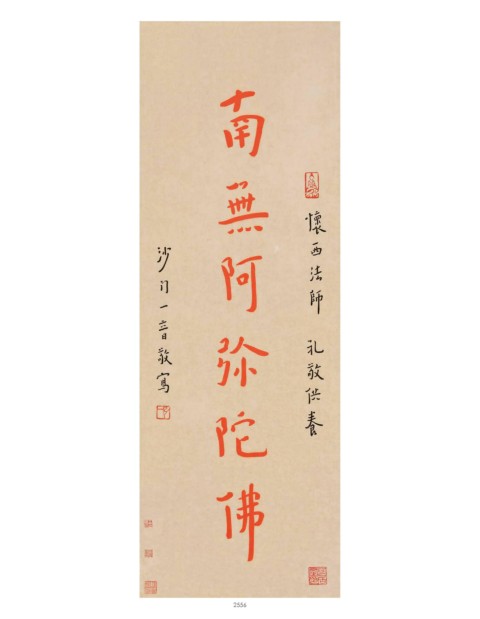 懷西法師 礼敬供養
南無阿弥陀佛
沙门一音敬寫
2556